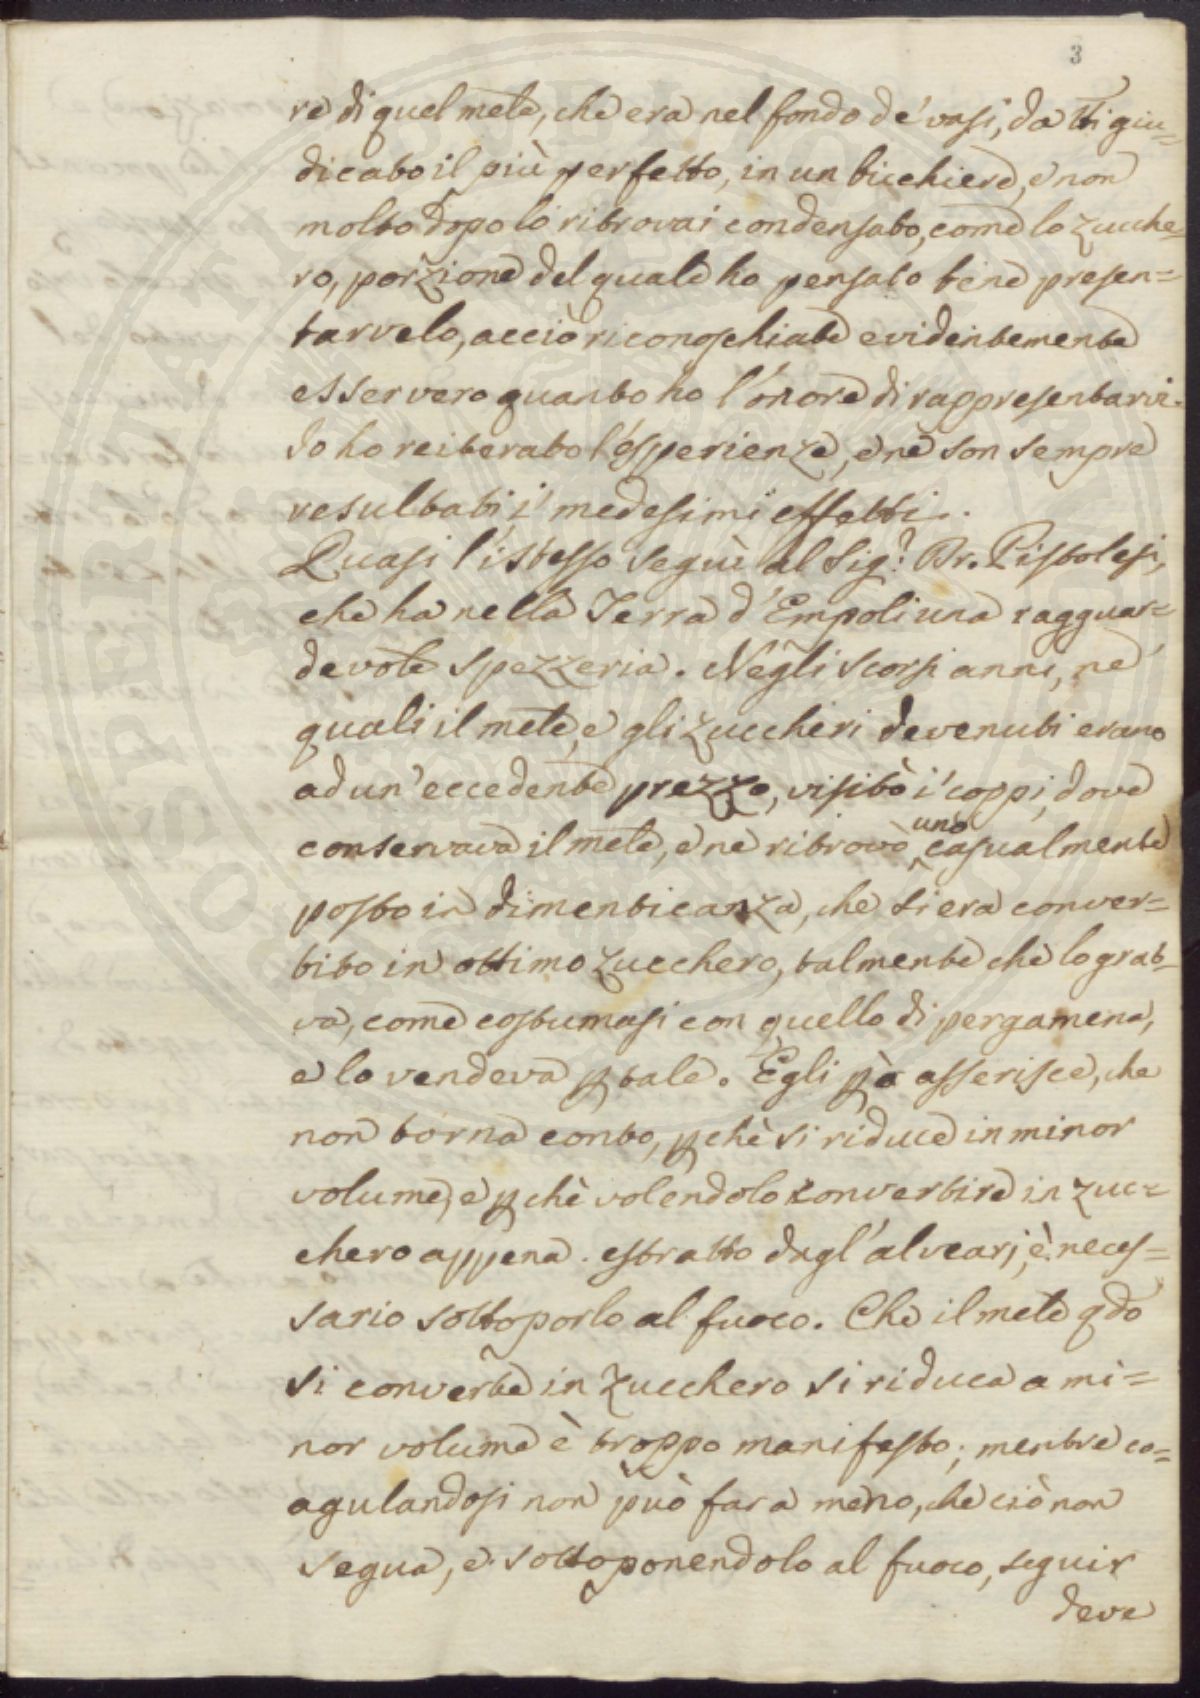 3
re di quel mele, che era nel fondo de' vasi, da tti giu=
dicato il più perfetto, in un bicchiere, e non
molto dopo lo ritrovai condensato, come lo zucche=
ro, porzione del quale ho pensato bene presen=
tarvelo, acciò riconoschiate evidentemente
esser vero quanto ho l'onore di rappresentarvi.
Io ho reiterato l'esperienze, e ne son sempre
resultati i' medesimi effetti.
Quasi l'istesso seguì al Sig.r Dr. Pistolesi,
che ha nella Terra d'Empoli una ragguar=
devole spezzeria. Negli scorsi anni, ne'
quali il mele, e gli zuccheri devenuti erano
ad un'eccedente prezzo, visitò i' coppi, dove
conservava il mele, e ne ritrovò uno casualmente
posto in dimenticanza, che si era conver=
tito in ottimo zucchero, talmente che lo grat=
va, come costumasi con quello di pergamena,
e lo vendeva p tale. Egli pò asserisce, che
non torna conto, pchè si riduce in minor
volume, e pchè volendolo convertire in zuc=
chero appena estratto dagl'alvearj, è neces=
sario sottoporlo al fuoco. Che il mele qdo
si converte in zucchero si riduca a mi=
nor volume è troppo manifesto; mentre co=
agulandosi non può far a meno, che ciò non
segua, e sottoponendolo al fuoco, seguir
deve